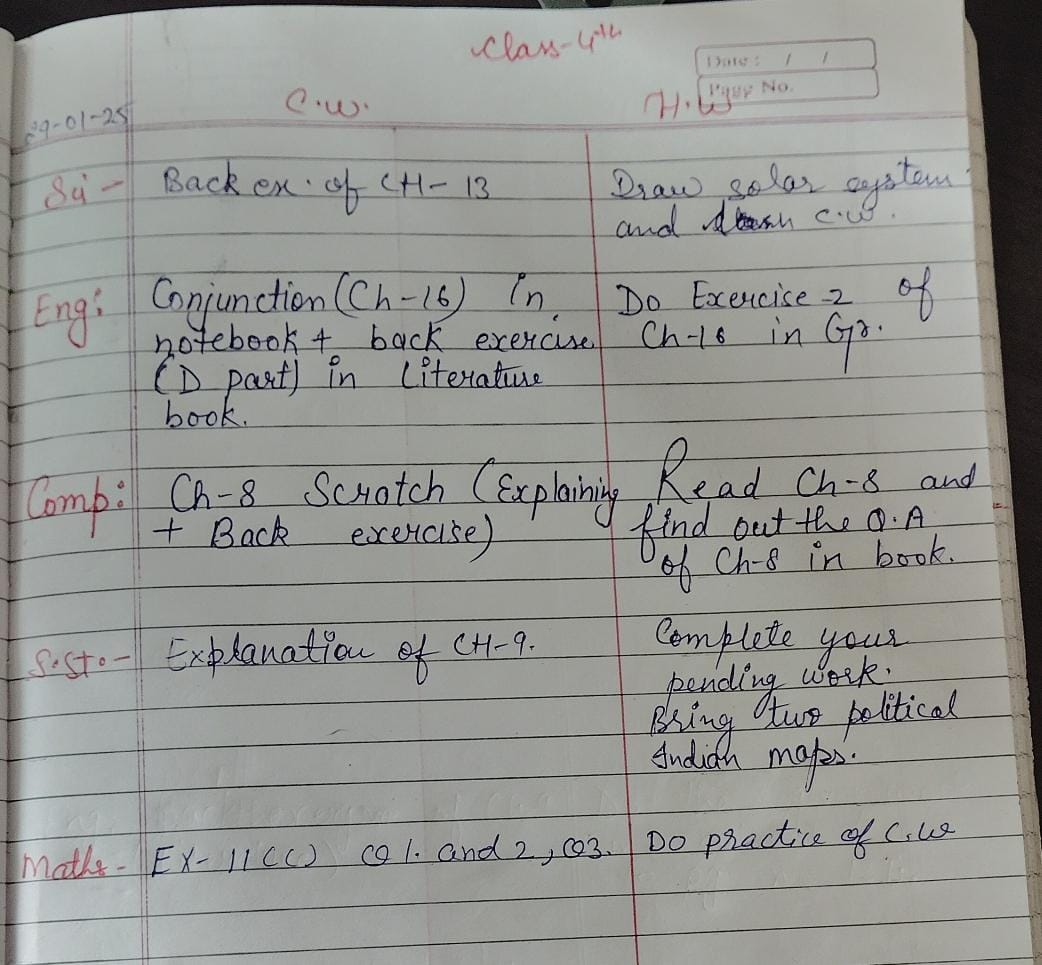 Class-4th
Date : / /
Page No.
C.W. H.W
29-01-25
Sci - Back ex. of CH-13 Draw solar system
and C.W.
Eng: Conjunction (Ch-16) in Do Exercise-2 of
notebook + back exercise Ch-16 in Gr.
(D part) in Literature
book.
Comp: Ch-8 Scratch (Explaining Read Ch-8 and
+ Back exercise) find out the Q.A
of Ch-8 in book.
S.St. - Explanation of CH-9. Complete your
pending work.
Bring two political
Indian maps.
Maths - EX-11(C) Q1. and 2, Q3. Do practice of C.W